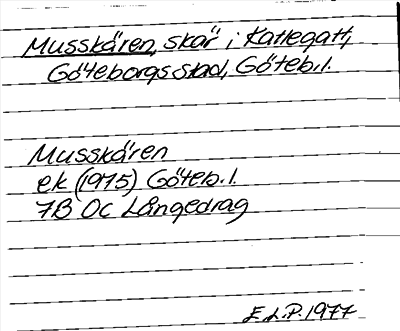 Musskären, skär i Kattegatt,
Göteborgs stad, Göteb.l.
Musskären
ek (1975) Göteb.l.
7B 0c Långedrag
E.L.P. 1977